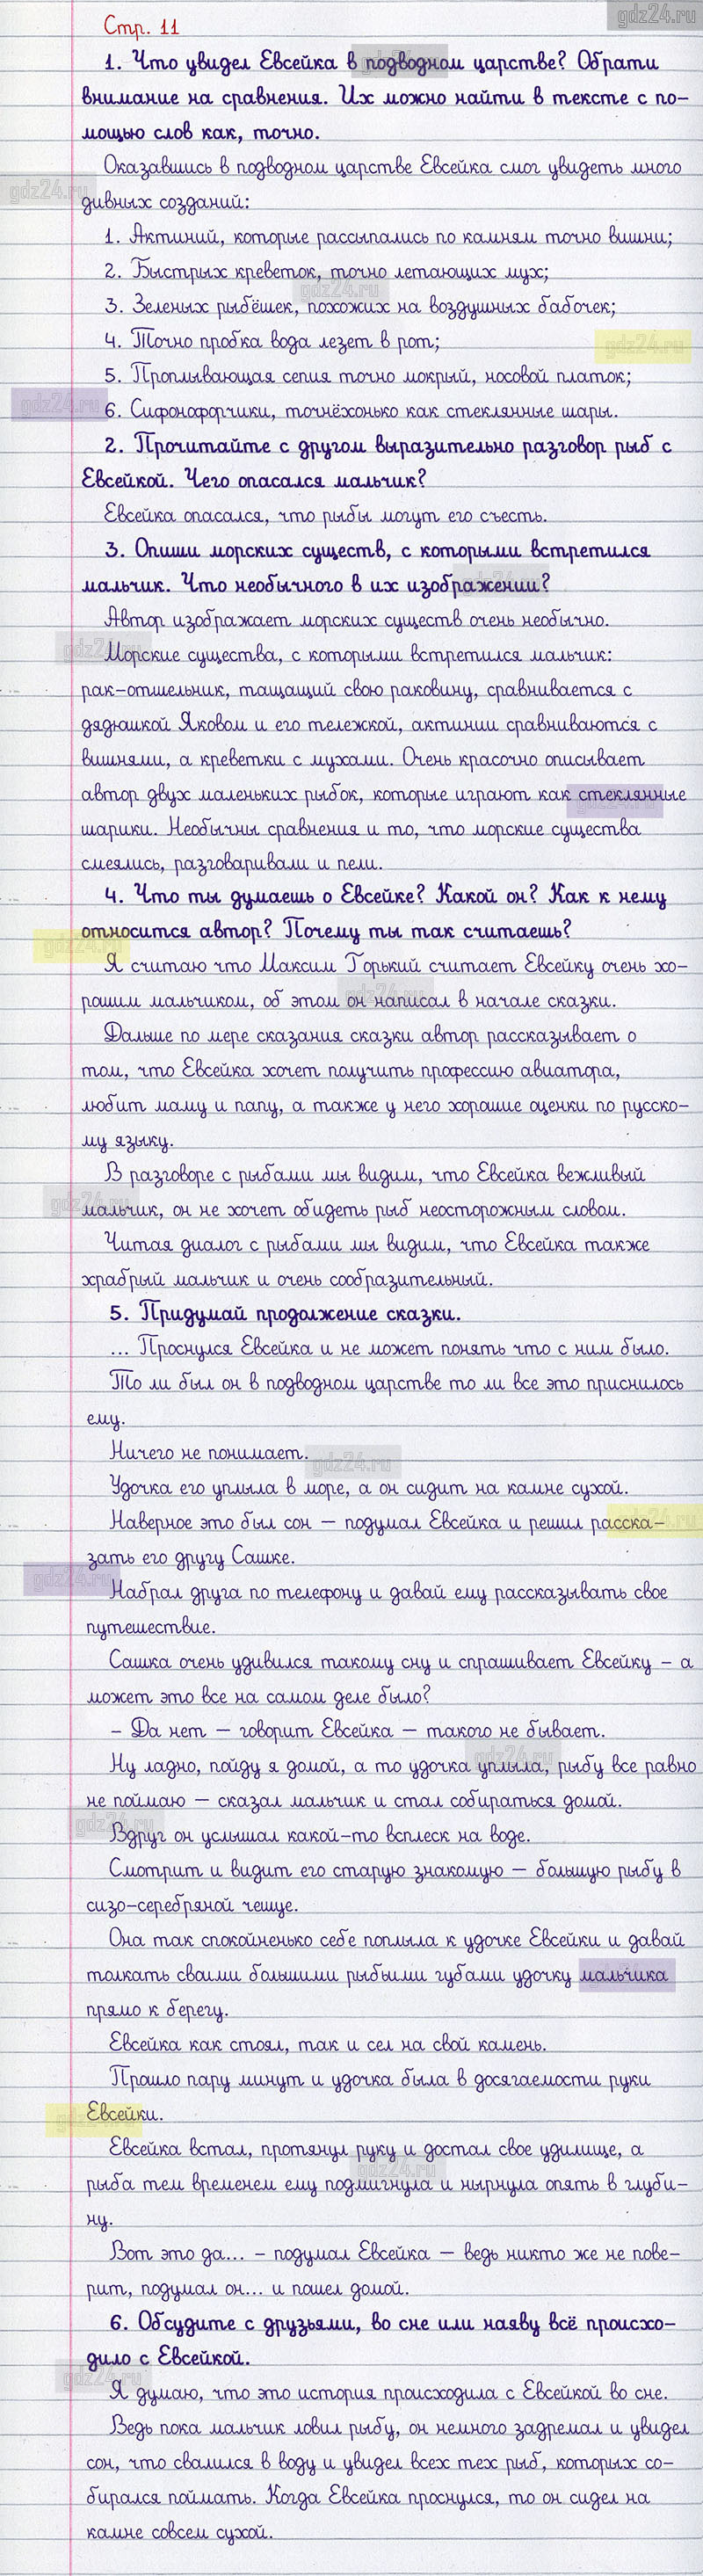 gdz24.ru
Стр. 11
1. Что увидел Евсейка в подводном царстве? Обрати
внимание на сравнения. Их можно найти в тексте с по-
мощью слов как, точно.
Оказавшись в подводном царстве Евсейка смог увидеть много
дивных созданий:
1. Актиний, которые рассыпались по камням точно вишни;
2. Быстрых креветок, точно летающих мух;
3. Зеленых рыбёшек, похожих на воздушных бабочек;
4. Точно пробка вода лезет в рот;
5. Проплывающая сепия точно мокрый, носовой платок;
6. Сифонофорчики, точнёхонько как стеклянные шары.
2. Прочитайте с другом выразительно разговор рыб с
Евсейкой. Чего опасался мальчик?
Евсейка опасался, что рыбы могут его съесть.
3. Опиши морских существ, с которыми встретился
мальчик. Что необычного в их изображении?
Автор изображает морских существ очень необычно.
Морские существа, с которыми встретился мальчик:
рак-отшельник, тащащий свою раковину, сравнивается с
дядюшкой Яковом и его тележкой, актинии сравниваются с
вишнями, а креветки с мухами. Очень красочно описывает
автор двух маленьких рыбок, которые играют как стеклянные
шарики. Необычны сравнения и то, что морские существа
смеялись, разговаривали и пели.
4. Что ты думаешь о Евсейке? Какой он? Как к нему
относится автор? Почему ты так считаешь?
Я считаю что Максим Горький считает Евсейку очень хо-
рошим мальчиком, об этом он написал в начале сказки.
Дальше по мере сказания сказки автор рассказывает о
том, что Евсейка хочет получить профессию авиатора,
любит маму и папу, а также у него хорошие оценки по русско-
му языку.
В разговоре с рыбами мы видим, что Евсейка вежливый
мальчик, он не хочет обидеть рыб неосторожным словом.
Читая диалог с рыбами мы видим, что Евсейка также
храбрый мальчик и очень сообразительный.
5. Придумай продолжение сказки.
... Проснулся Евсейка и не может понять что с ним было.
То ли был он в подводном царстве то ли все это приснилось
ему.
Ничего не понимает.
Удочка его уплыла в море, а он сидит на камне сухой.
Наверное это был сон – подумал Евсейка и решил расска-
зать его другу Сашке.
Набрал друга по телефону и давай ему рассказывать свое
путешествие.
Сашка очень удивился такому сну и спрашивает Евсейку – а
может это все на самом деле было?
– Да нет – говорит Евсейка – такого не бывает.
Ну ладно, пойду я домой, а то удочка уплыла, рыбу все равно
не поймаю – сказал мальчик и стал собираться домой.
Вдруг он услышал какой-то всплеск на воде.
Смотрит и видит его старую знакомую – большую рыбу в
сизо-серебряной чешуе.
Она так спокойненько себе поплыла к удочке Евсейки и давай
толкать своими большими рыбьими губами удочку мальчика
прямо к берегу.
Евсейка как стоял, так и сел на свой камень.
Прошло пару минут и удочка была в досягаемости руки
Евсейки.
Евсейка встал, протянул руку и достал свое удилище, а
рыба тем временем ему подмигнула и нырнула опять в глуби-
ну.
Вот это да... – подумал Евсейка – ведь никто же не пове-
рит, подумал он... и пошел домой.
6. Обсудите с друзьями, во сне или наяву всё происхо-
дило с Евсейкой.
Я думаю, что это история происходила с Евсейкой во сне.
Ведь пока мальчик ловил рыбу, он немного задремал и увидел
сон, что свалился в воду и увидел всех тех рыб, которых со-
бирался поймать. Когда Евсейка проснулся, то он сидел на
камне совсем сухой.